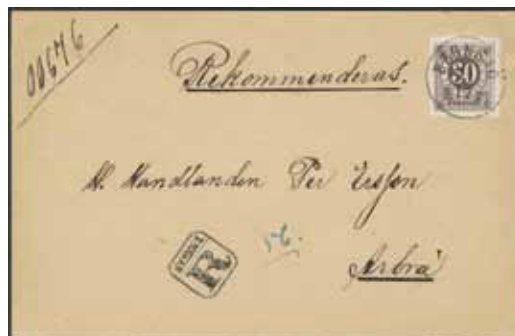 00676
Rekommenderas.
20
H. Handlanden Per Ersson
R
56.
Arbrå